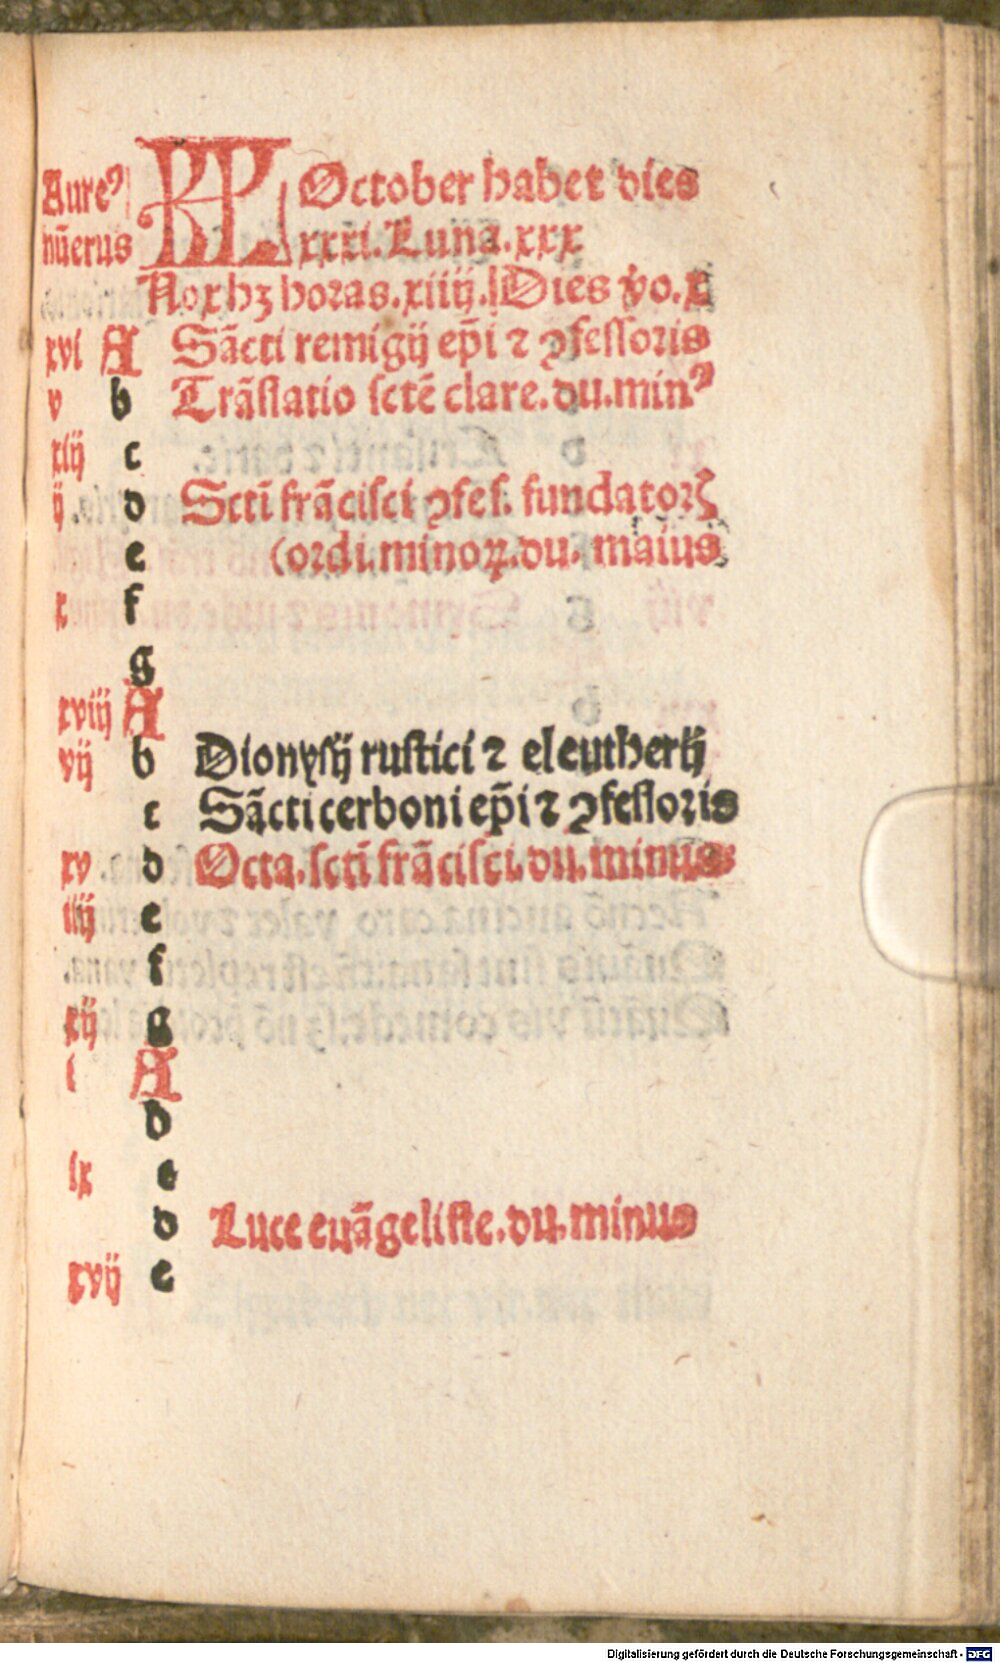 Aureꝰ KL October habet dies
nũerus xxxi. Luna. xxx
Nox hꝫ horas. xiiij. Dies ꝟo. x
xvi A Sãcti remigij ep̃i ⁊ ꝯfessoris
v b Trãslatio sctẽ clare. du. minꝰ
xiij c
ij d Scti frãcisci ꝯfes. fundatoꝝ
e (ordi. minoꝝ. du. maius
x f
g
xviij A
vij b Dionysij rustici ⁊ eleutherij
c Sãcti cerboni ep̃i ⁊ ꝯfessoris
xv d Octa. scti frãcisci. du. minus
iiij e
f
xij g
i A
b
ix c
d Luce euãgeliste. du. minus
xvij e
Digitalisierung gefördert durch die Deutsche Forschungsgemeinschaft - DFG